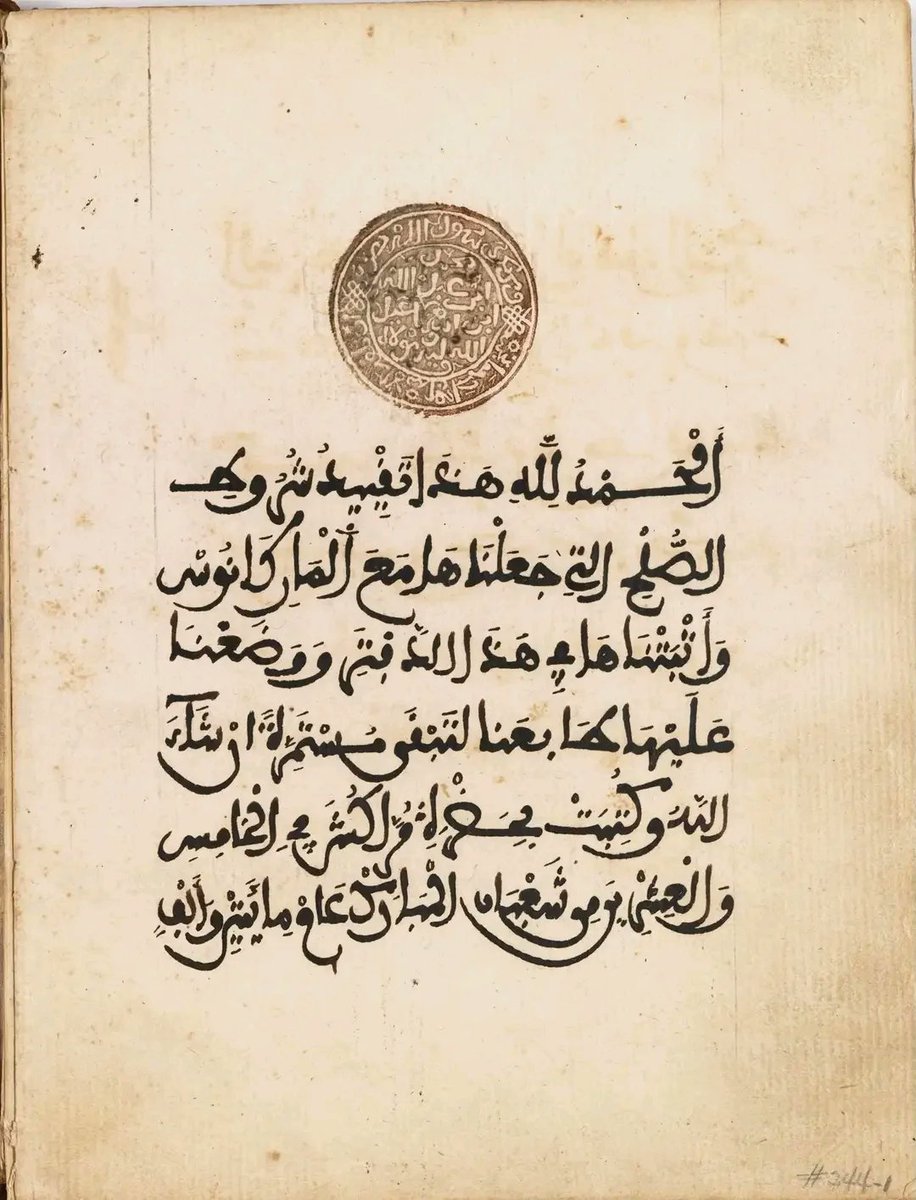 أَلْحَمْدُ لِلَّهِ هَذَا تَقْيِيدُ شُرُوطِ
الصُّلْحِ التِي جَعَلْنَاهَا مَعَ أَلْمَارِكَانُوسْ
وَأَثْبَتْنَاهَا فِي هَذَا الدَّفْتَرِ وَوَضَعْنَا
عَلَيْهَا طَابِعَنَا لِتَبْقَى مُسْتَمِرَةً ان شَآءَ
اللَّهُ وَكُتِبَتْ بِحَضْرَةِ مُرَّاكُشَ فِي الْخَامِسِ
وَالْعِشْرِينَ مِن شَعْبَان الْمُبَارَكْ عَامْ مِائَتَيْنِ وَأَلْفٍ
#344-1